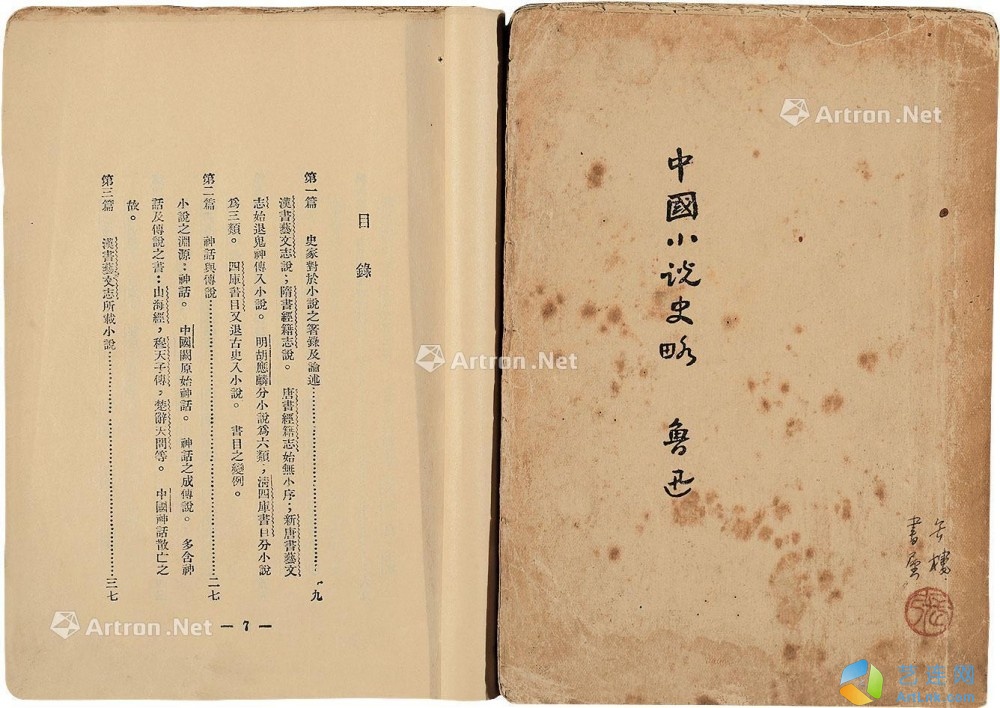 中國小說史略　魯迅
書屋
目錄
第一篇　史家對於小說之著錄及論述……………九
漢書藝文志說；隋書經籍志說。　唐書經籍志始無小序；新唐書藝文
志始退鬼神傳入小說。　明胡應麟分小說爲六類；清四庫書目分小說
爲三類。　四庫書目又退古史入小說。　書目之變例。
第二篇　神話與傳說……………二七
小說之淵源：神話。　中國闕原始神話。　神話之成傳說。　多含神
話及傳說之書：山海經，穆天子傳，楚辭天問等。　中國神話散亡之
故。
第三篇　漢書藝文志所載小說……………三七
— 7 —
Artron.Net
Artron.Net
Artron.Net
艺佳网